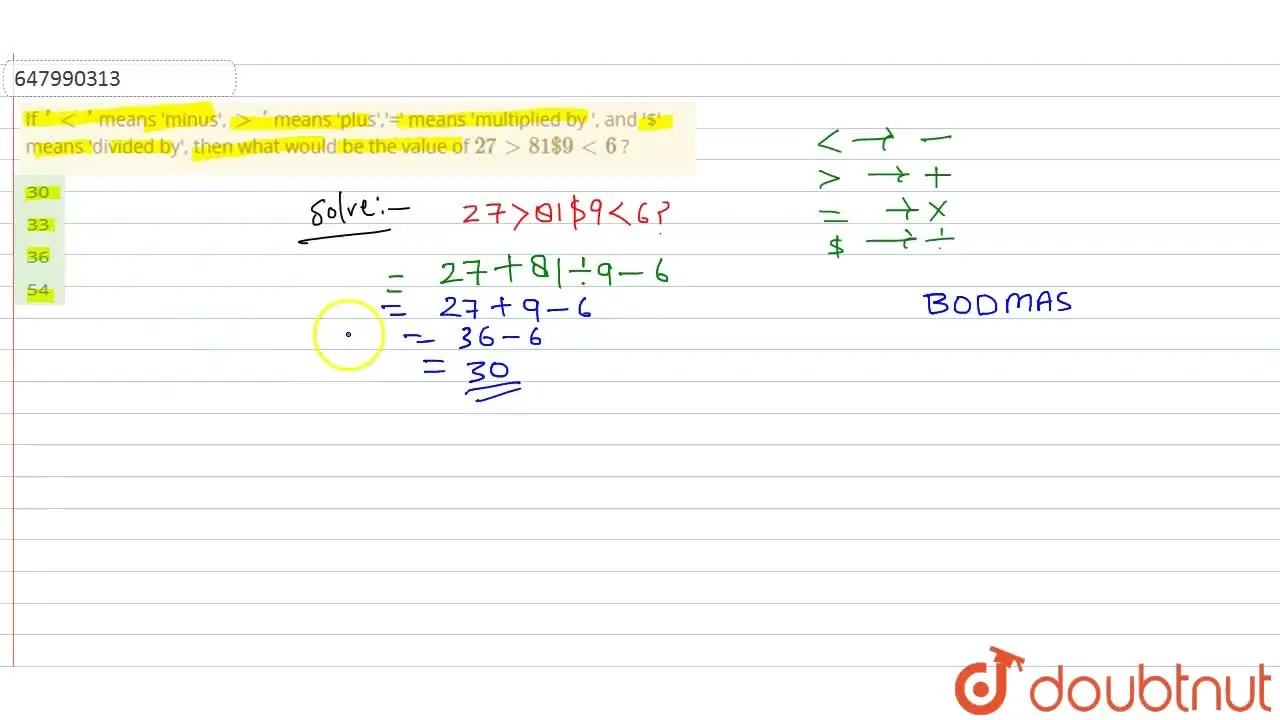 647990313
If ′ < ′ means 'minus', > ′ means 'plus','=' means 'multiplied by ', and '$'
means 'divided by', then what would be the value of 27 > 81$9 < 6 ?
30
33
36
54
Solve:-
27>81$9<6?
= 27+81÷9-6
= 27+9-6
= 36-6
= 30
< → -
> → +
= → ×
$ → ÷
BODMAS
doubtnut